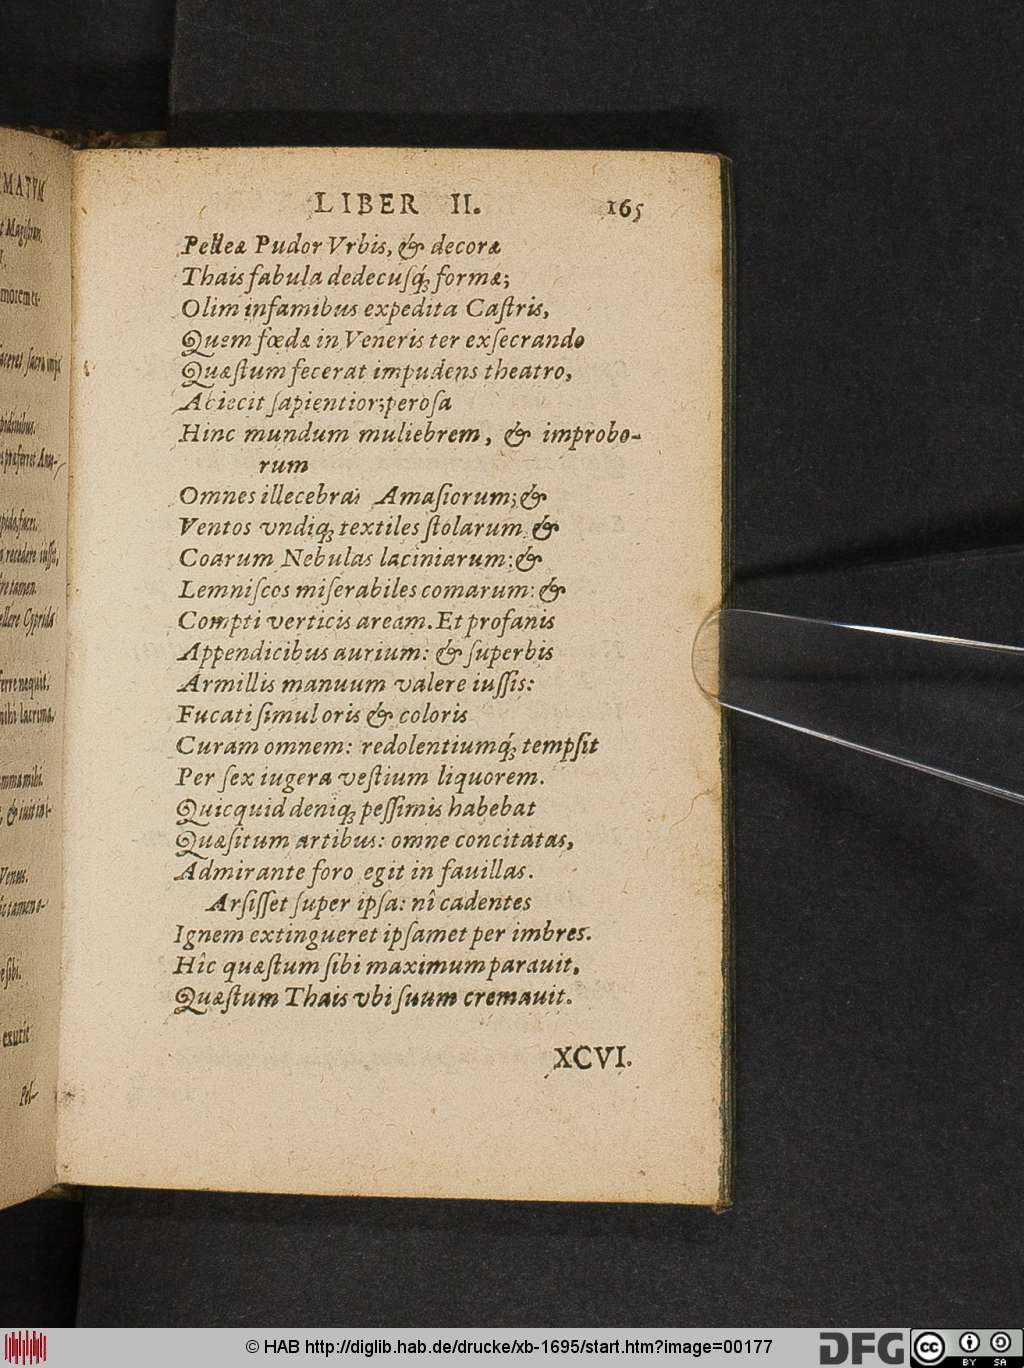 MATVM
LIBER II. 165
Pelleæ Pudor Vrbis, & decoræ
Thais fabula dedecuſq́; formæ;
Olim infamibus expedita Caſtris,
Quem fœdæ in Veneris ter exſecrando
Quæſtum fecerat impudens theatro,
Abiecit ſapientior; peroſa
Hinc mundum muliebrem, & improbo-
rum
Omnes illecebras Amaſiorum; &
Ventos vndiq; textiles ſtolarum, &
Coarum Nebulas laciniarum: &
Lemniſcos miſerabiles comarum: &
Compti verticis aream. Et profanis
Appendicibus aurium: & ſuperbis
Armillis manuum valere iuſſis:
Fucati ſimul oris & coloris
Curam omnem: redolentiumq́; tempſit
Per ſex iugera veſtium liquorem.
Quicquid deniq; peſſimis habebat
Quæſitum artibus: omne concitatas,
Admirante foro egit in fauillas.
Arſiſſet ſuper ipſa: nî cadentes
Ignem extingueret ipſamet per imbres.
Hîc quæſtum ſibi maximum parauit,
Quæſtum Thais vbi ſuum cremauit.
XCVI.
© HAB http://diglib.hab.de/drucke/xb-1695/start.htm?image=00177
DFG
cc
BY SA